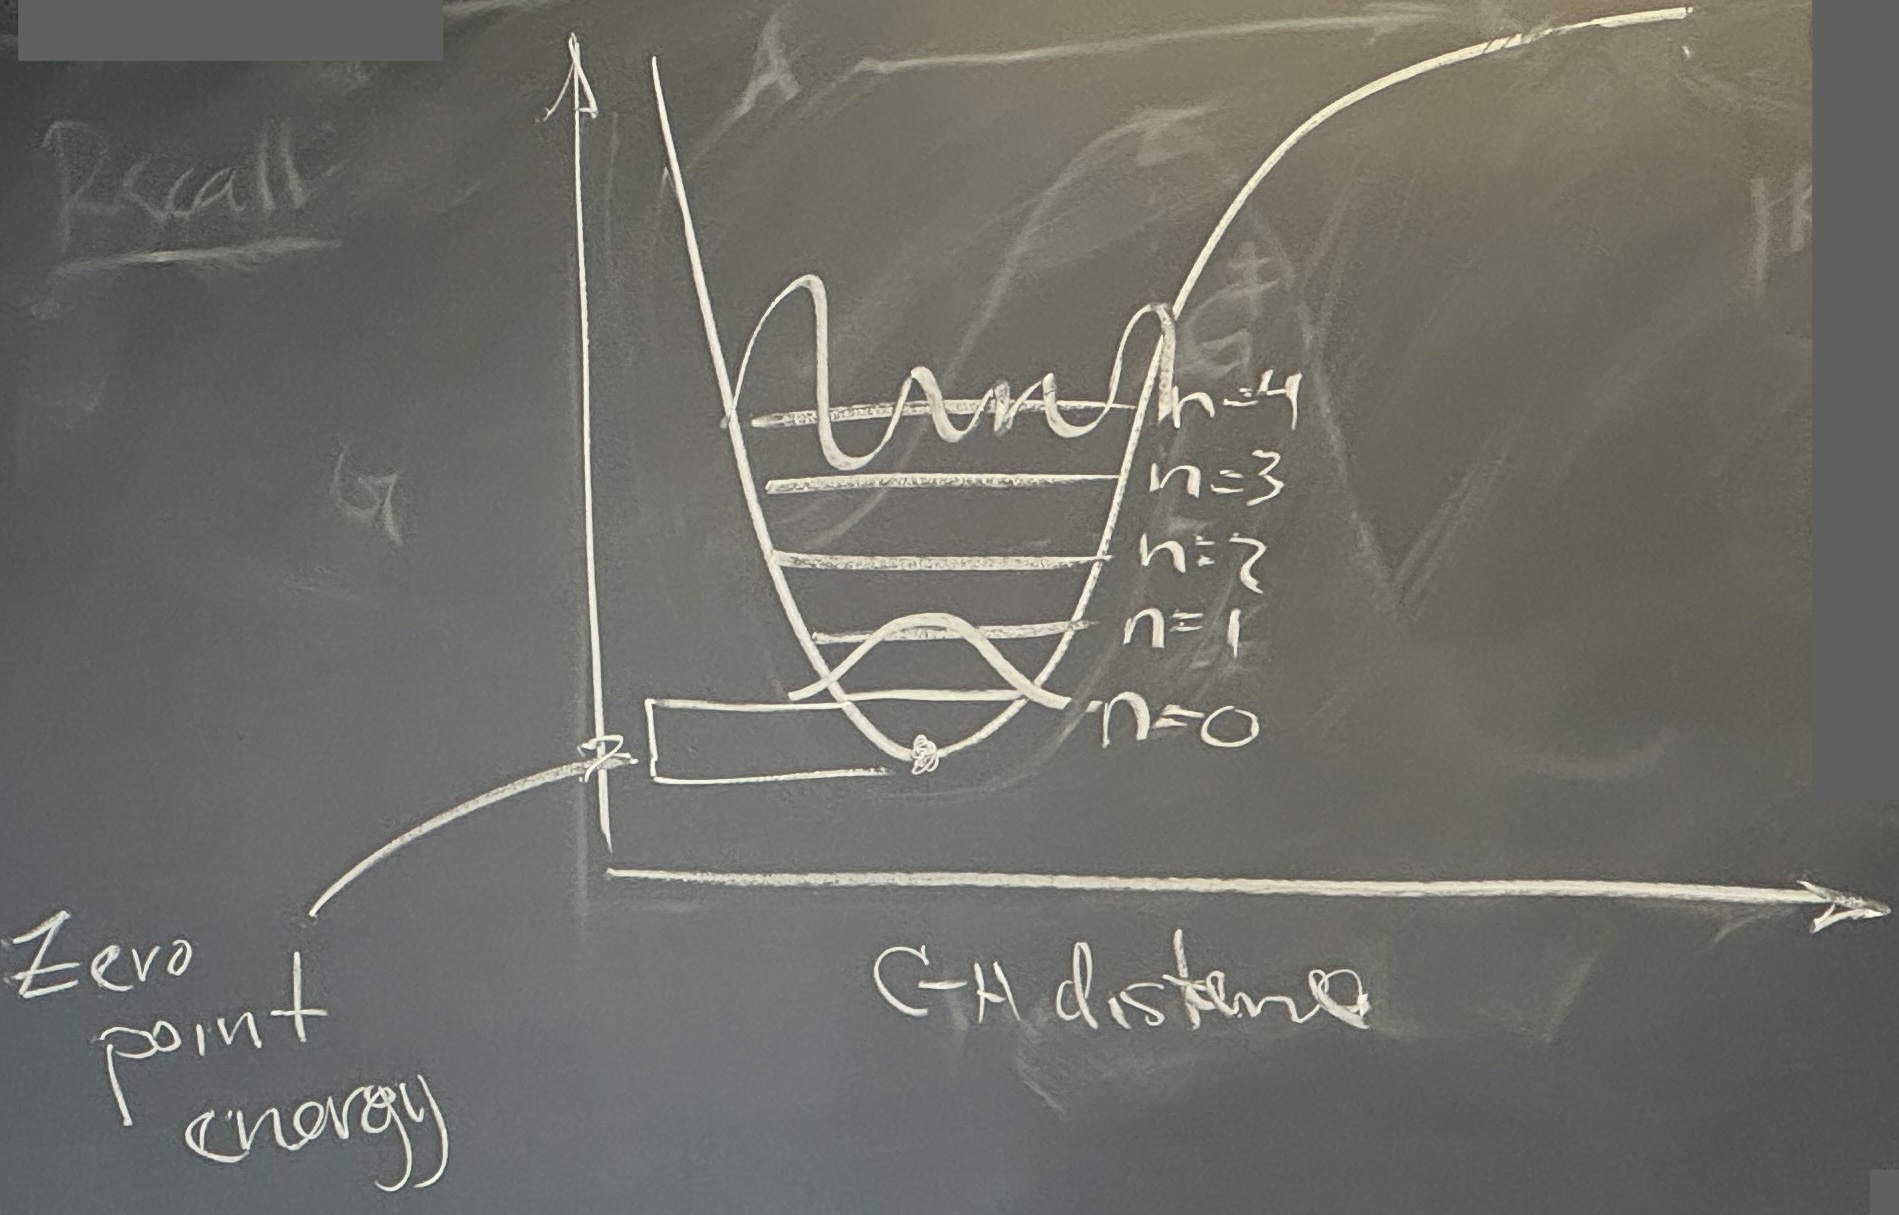 Recall
n=4
n=3
n=2
n=1
n=0
Zero
point
energy
C-H distance
G